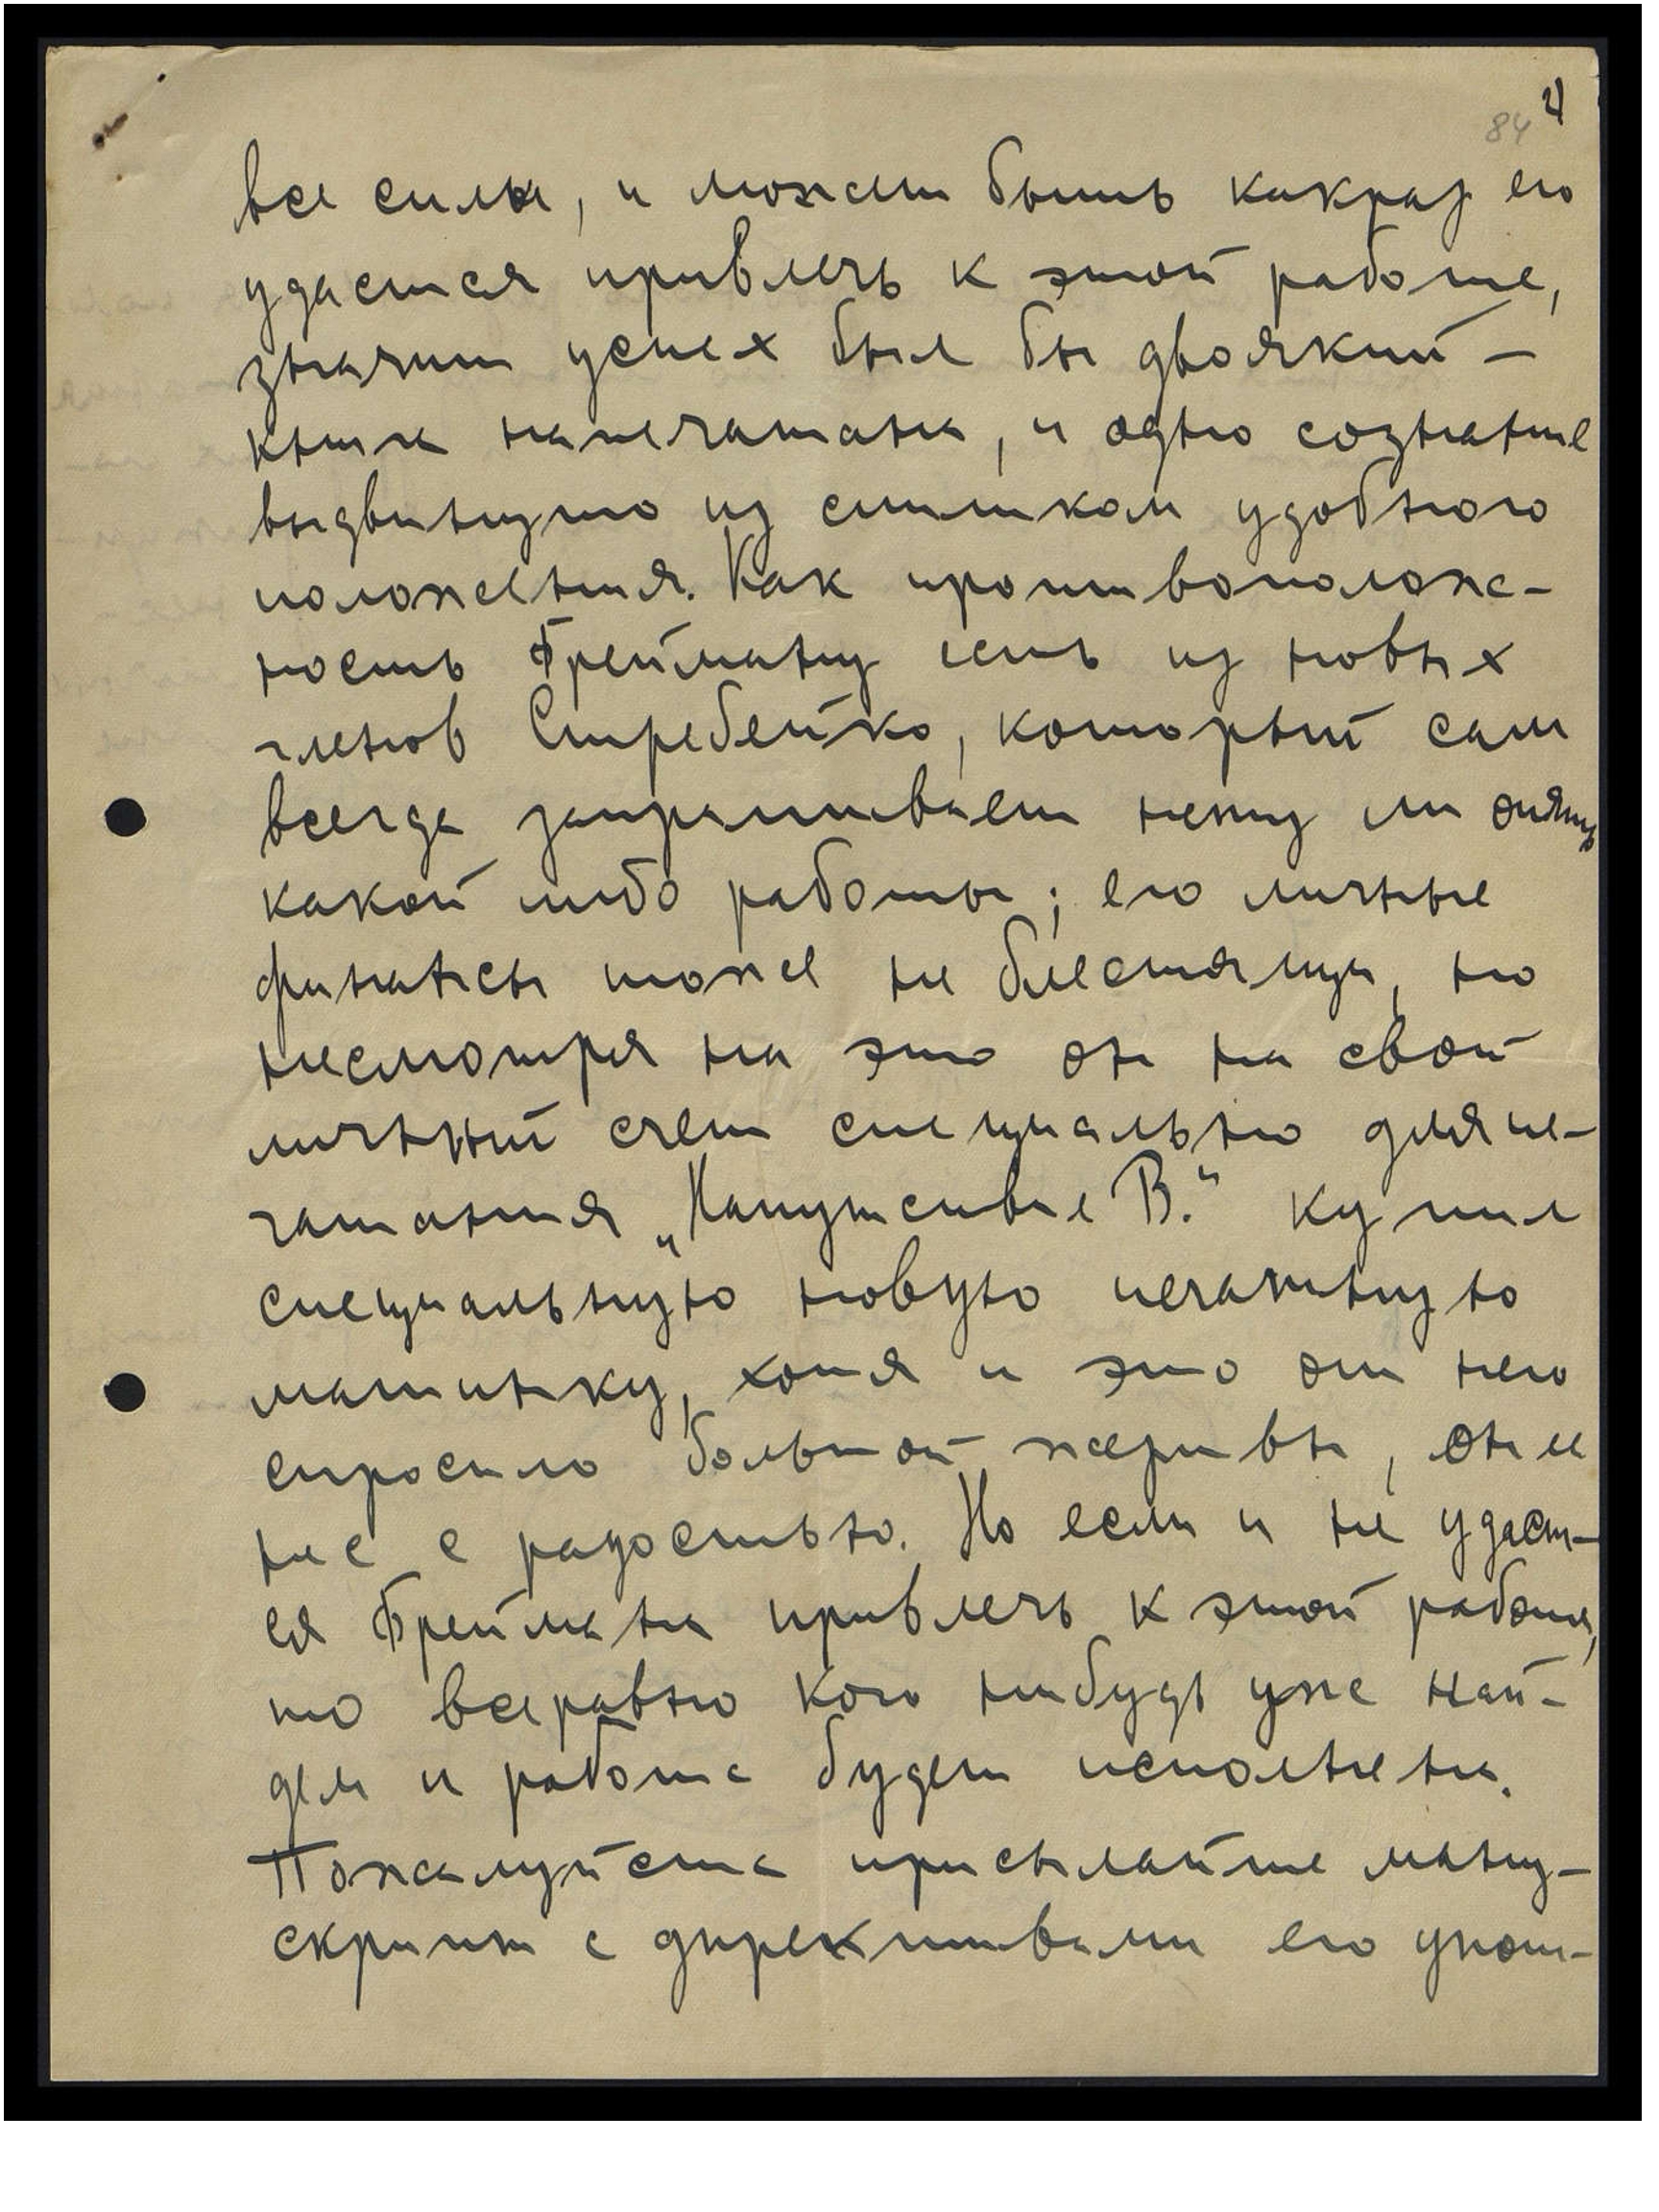 84 4
все силы, и может быть какраз его
удастся привлечь к этой работе,
значит успех был бы двоякий —
книга напечатана, и одно сознание
выдвинуто из слишком удобного
положения. Как противополож-
ность Брейману есть из новых
членов Стребейко, который сам
всегда запрашивает нету ли опять
какой либо работы; его личные
финансы тоже не блестящи, но
несмотря на это он на свой
личный счет специально для пе-
чатания „Напутствие В.“ купил
специальную новую печатную
машинку, хотя и это от него
спросило большой жертвы, он ее
нес с радостью. Но если и не удаст-
ся Бреймана привлечь к этой работе,
то всеравно кого нибудь уже най-
дем и работа будет исполнена.
Пожалуйста присылайте ману-
скрипт с директивами его упот-